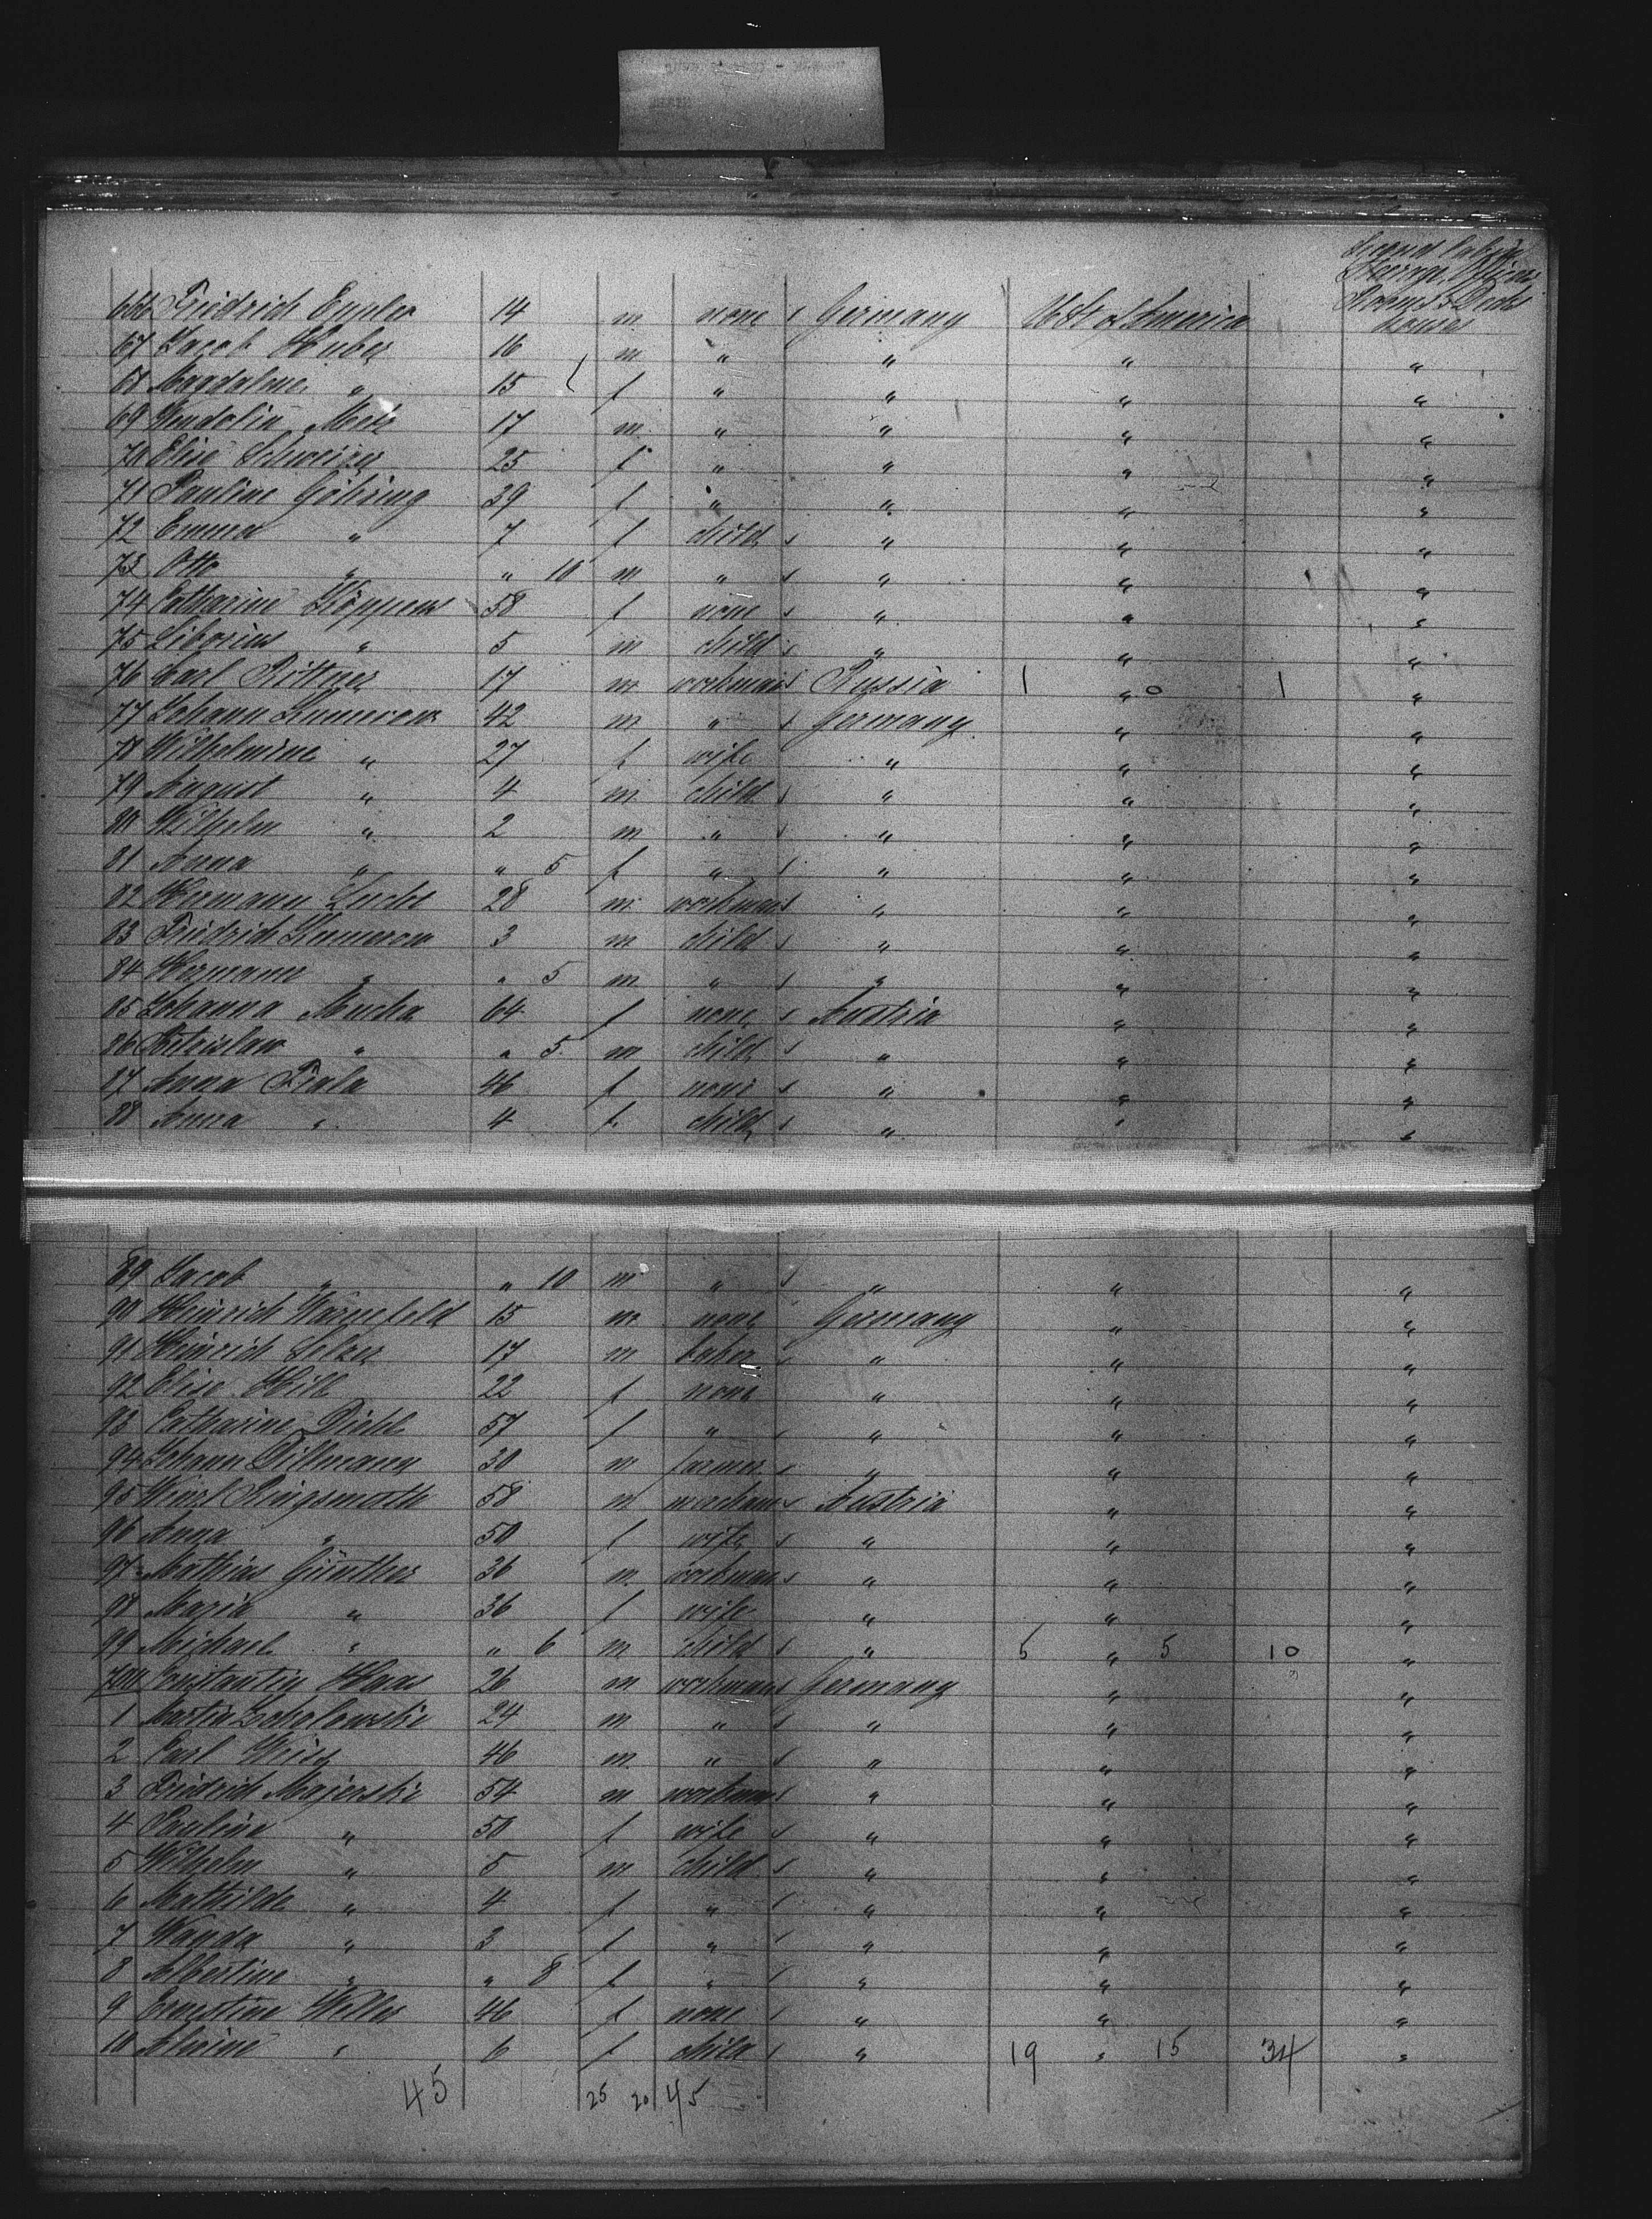 Second Cabin
Steerage, Officers
Rooms & Deck
houses
666 Friedrich Eppler 14 m none s Germany USt of America
67 Jacob Huber 16 m " " " "
68 Magdalene " 15 f " " " "
69 Wendolin Merk 17 m " " " "
70 Elise Schweizer 25 f " " " "
71 Pauline Göhring 39 f " " " "
72 Emma " 7 f child s " " "
73 Otto " " 10 m " s " " "
74 Catharine Köppen 58 f none s " " "
75 Liborius " 5 m child s " " "
76 Carl Rittner 17 m workman s Russia 1 " 0 1 "
77 Johann 42 m " s Germany " "
78 Wilhelmine " 27 f wife " " "
79 August " 4 m child s " " "
80 Wilhelm " 2 m " s " " "
81 Anna " " 5 f " s " " "
82 Hermann 28 m workman s " " "
83 Friedrich 3 m child s " " "
84 Hermann " " 5 m " s " " "
85 Johanna Mucha 64 f none s Austria " "
86 " " 5 m child s " " "
87 Anna Fiala 46 f none s " " "
88 Anna " 4 f child s " " "
89 Jacob " " 10 m " s " " "
90 Heinrich Warnefeld 15 m none Germany " "
91 Heinrich Selzer 17 m baker s " " "
92 Elise Hill 22 f none " " "
93 Catharine Diehl 57 f " s " " "
94 Johann Dillmann 30 m farmer s " " "
95 Wenzl Ringsmuth 58 m workman s Austria " "
96 Anna " 50 f wife s " " "
97 Mathias Günther 36 m workman s " " "
98 Maria " 36 f wife " " "
99 Michael " " 6 m child s " 5 " 5 10 "
700 Constantin Haas 26 m workman s Germany " "
1 Martin 24 m " s " " "
2 Carl 46 m " s " " "
3 Friedrich Majerski 54 m workman s " " "
4 Pauline " 50 f wife s " " "
5 Wilhelm " 5 m child s " " "
6 Mathilde " 4 f " s " " "
7 Wanda " 3 f " s " " "
8 Albertine " " 8 f " s " " "
9 Ernestine Weller 46 f none s " " "
10 Alwine " 6 f child s " 19 " 15 34 "
45 25 20 45